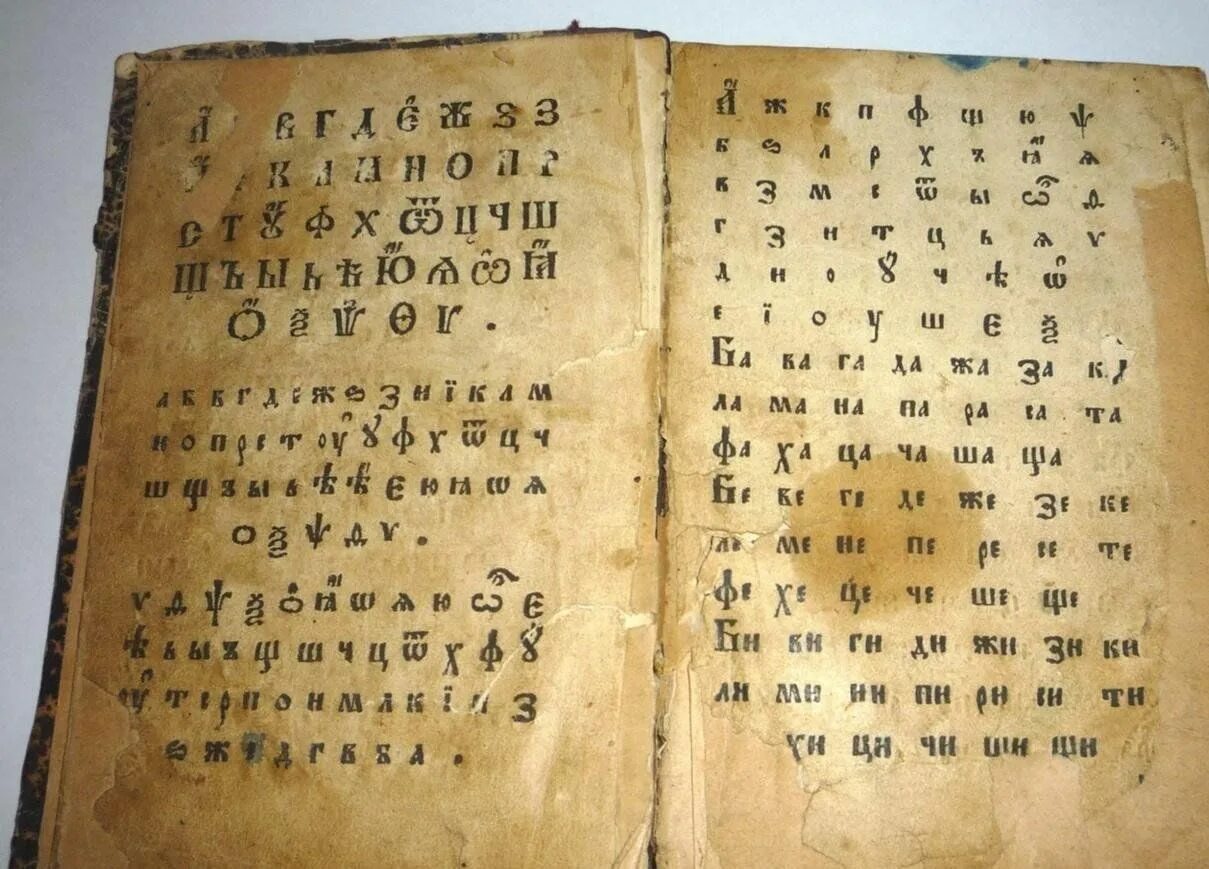 А҆ В Г Д Є҆ Ж Ѕ З
К Л М Н О П Р
С Т Ꙋ҆ Ф Х Ѿ Ц Ч Ш
Щ Ъ Ы Ь Ѣ Ю҆ Ѧ Ѽ Ꙗ҆
Ѻ҆ Ѯ Ѱ Ѳ Ѵ .
а б в г д е ж ѕ з и ї к л м
н о п р с т оу҆ ꙋ҆ ф х ѿ ц ч
ш щ ъ ы ь ѣ ѣ҆ є ю ꙗ ѡ ѧ
ѻ ѯ ѱ ѳ ѵ .
ѵ ѳ ѱ ѯ ѻ҆ ꙗ҆ ѡ ѧ ю ѽ є
ѣ ь ы ъ щ ш ч ц ѿ х ф ꙋ҆
оу҆ т с р п о н м л к ї и з
ѕ ж е д г в б а .
А҆ ж к п ф щ ю ѱ
б ѕ л р х ъ ꙗ҆ ѧ
в з м с ѿ ы ѽ ѳ
г з н т ц ь ѧ ѵ
д и о ꙋ҆ ч ѣ ѡ҆
е ї о у ш є ѯ
Ба ва га да жа за ка
ла ма на па ра са та
фа ха ца ча ша ща
Бе ве ге де же зе ке
ле ме не пе ре се те
фе хе це че ше ще
Би ви ги ди жи зи ки
ли ми ни пи ри си ти
хи ци чи ши щи